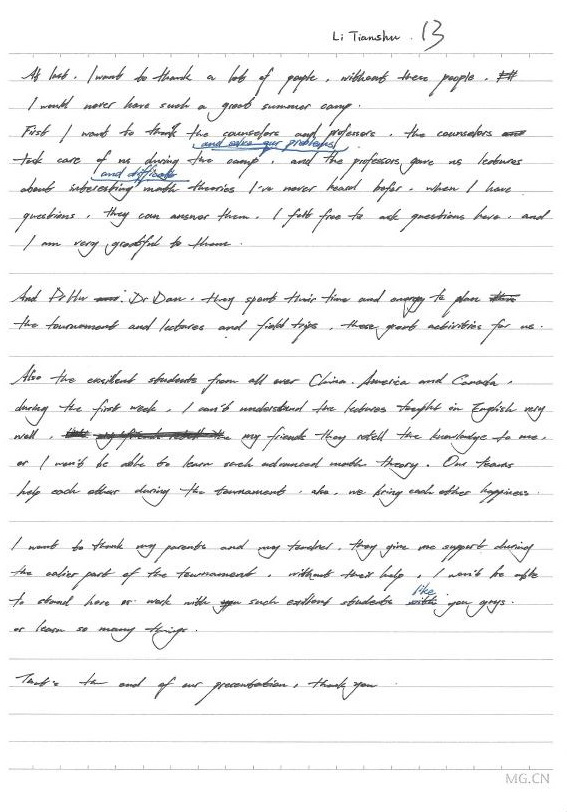 Li Tianshu . 13
At last. I want to thank a lot of people, without these people,
I would never have such a great summer camp.
First I want to thank the counselors and professors. the counselors
and solve our problems
took care of us during the camp, and the professors gave us lectures
and difficult
about interesting math theories I've never heard before. when I have
questions, they can answer them. I felt free to ask questions here, and
I am very grateful to them.
And Dr Hu Dr Dan. they spent their time and energy to plan
the tournament and lectures and field trips, these great activities for us.
Also the excellent students from all over China, America and Canada,
during the first week, I can't understand the lectures taught in English very
well, my friends they retell the knowledge to me,
or I won't be able to learn such advanced math theory. Our teams
help each other during the tournaments. also, we bring each other happiness.
I want to thank my parents and my teacher, they give me support during
the earlier part of the tournament, without their help, I won't be able
like
to stand here or work with such excellent students you guys.
or learn so many things.
That's the end of our presentation, thank you
MG.CN